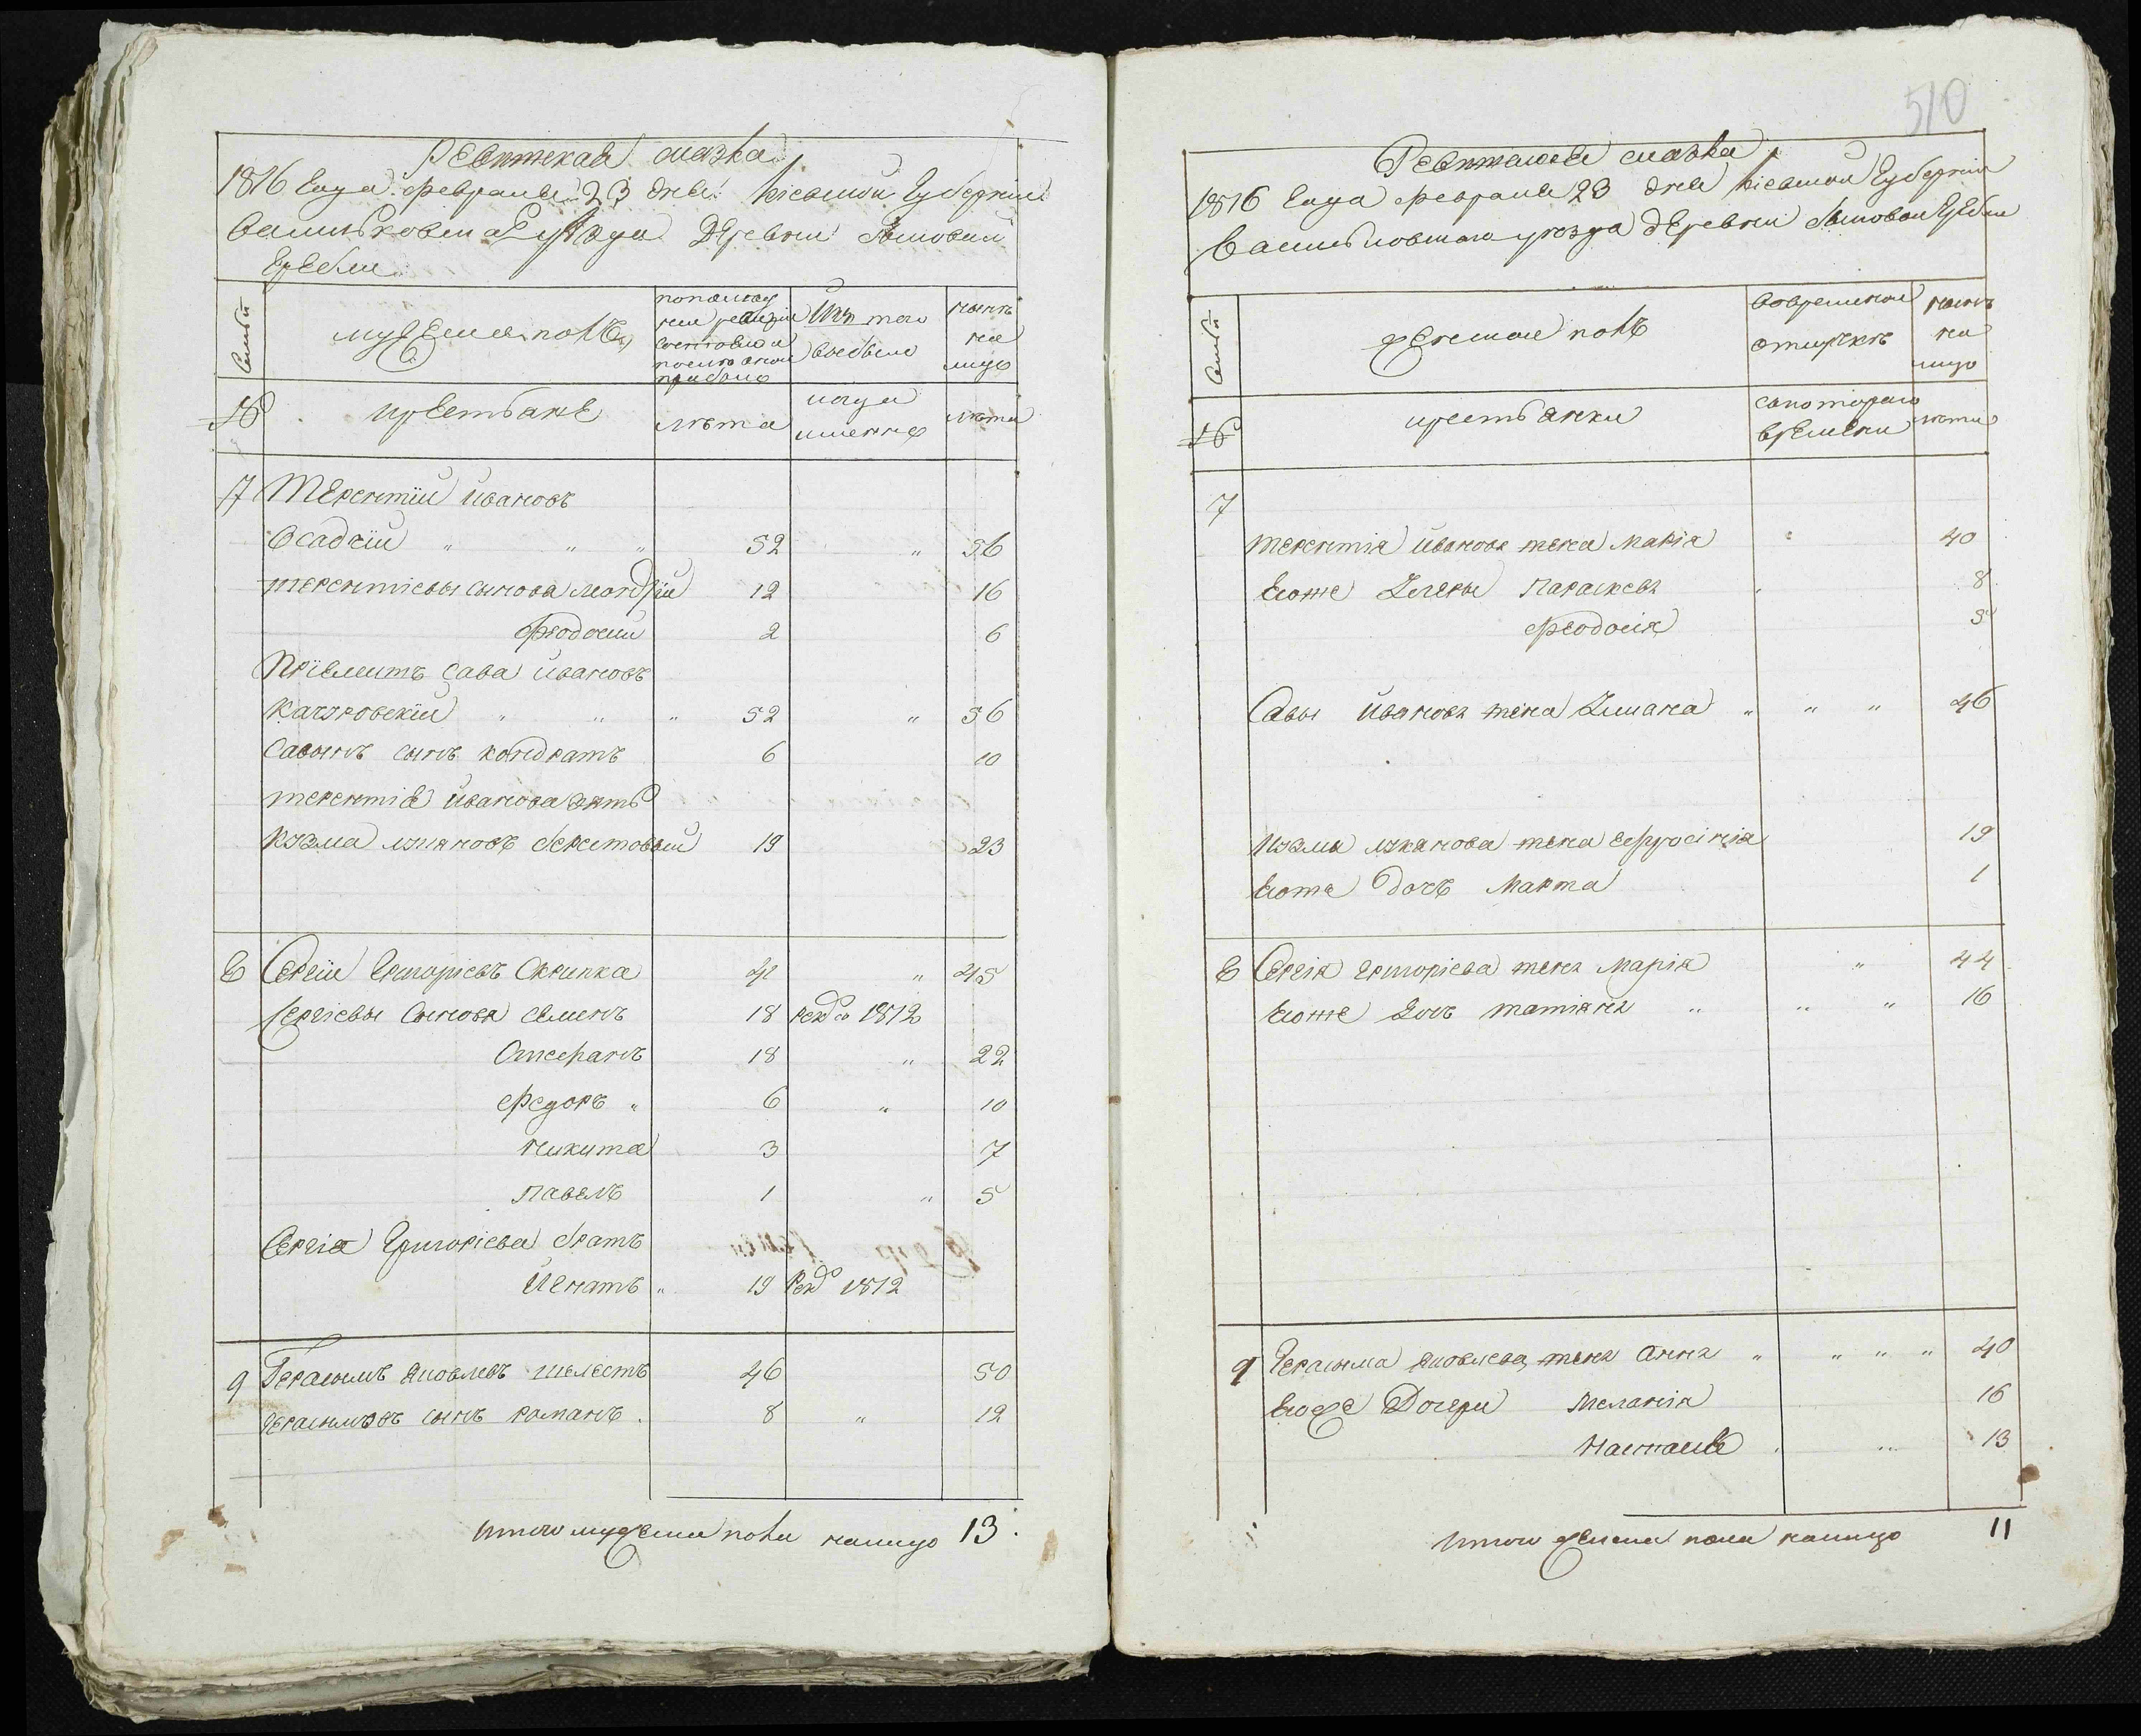 Ревижская сказка
1816 Года февраля 23 дня Кіевской Губерніи
Васильковскаго уѣзда Деревни Яцовой
Гребли
Семьи
мужеска полъ
по последней ревизіи состояло и после оной прибыло
Изъ того выбыло
нынѣ на лицо
№
крестьяне
лѣта
когда именно
лѣта
7 Терентій Ивановъ
Осадчій " " " 52 " 56
Терентіевы сынова Леонтій 12 16
Феодосий 2 6
Пріемитъ Сава Ивановъ
Качуровскій " " " 52 " 56
Савынъ сынъ Кондратъ 6 10
Терентія Иванова зять
Кузма Лукяновъ Берестовый 19 23
8 Сергій Григоріевъ Скрипка 41 " 45
Сергіевы Сынова Семенъ 18 рекд 1812
Стефанъ 18 " 22
Федоръ " 6 " 10
Никита 3 7
Павелъ 1 " 5
Сергія Григоріева братъ
Игнатъ " 19 Рекд 1812
9 Герасимъ Яковлевъ Шелестъ 46 50
Герасимовъ сынъ Романъ 8 " 12
Итого мужеска пола налицо 13
510
Ревижская сказка
1816 Года февраля 23 дня Кіевской Губерніи
Васильковскаго уезда Деревни Яцовой Гребли
Семьи
женской полъ
во временной отлучкѣ
нынѣ на лицо
№
крестьянки
с котораго времени
лѣта
7
Терентія Иванова жена Марія 40
Егоже Дщеры Параскева 8
Феодосія 5
Савы Иванова жена Улиана " " " 46
Кузмы Лукянова жена Ефросінія 19
Егоже дочъ Марта 1
8 Сергія Григоріева жена Марія " 44
Егоже Дочъ Татіяна " " " 16
9 Герасима Яковлева жена Анна " " " " 40
Егоже Дочери Меланія 16
Настасия " 13
Итого женска пола налицо 11